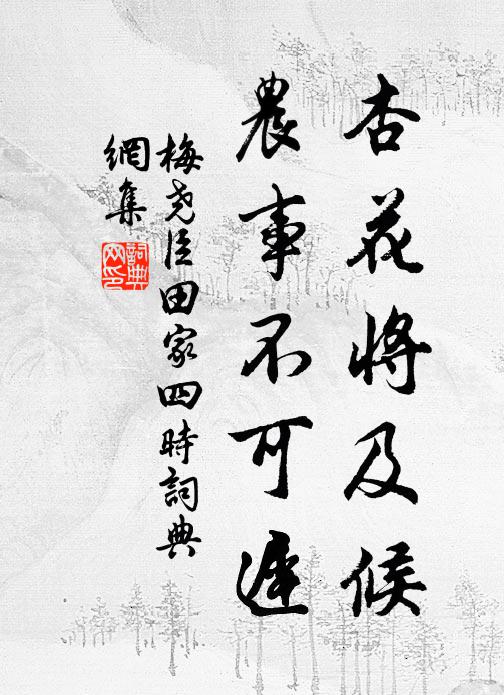 杏花將及候
農事不可遲
梅堯臣田家四時詞典
網集
詞典
网印